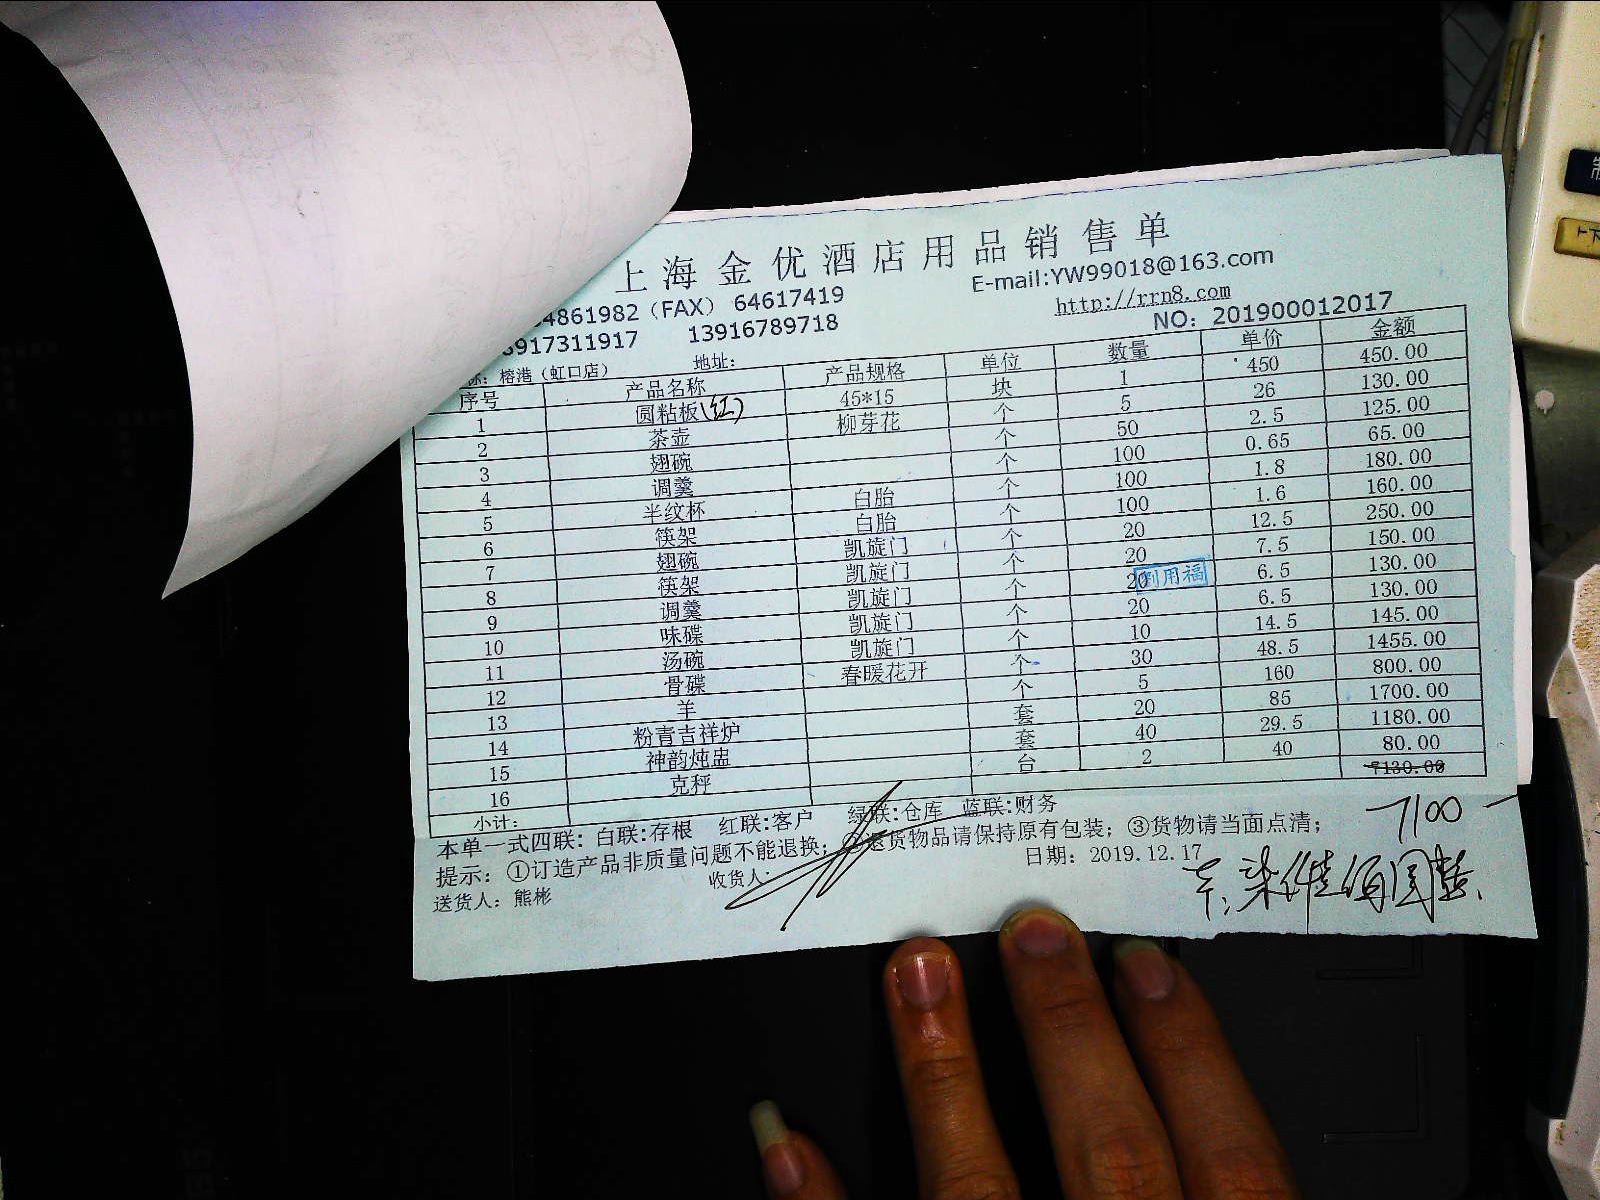 上海金优酒店用品销售单
4861982（FAX） 64617419 E-mail:YW99018@163.com
3917311917 13916789718 http://rrn8.com
榕港（虹口店） 地址： NO：201900012017
序号 产品名称 产品规格 单位 数量 单价 金额
1 圆粘板(红) 45*15 块 1 450 450.00
2 茶壶 柳芽花 个 5 26 130.00
3 翅碗 个 50 2.5 125.00
4 调羹 个 100 0.65 65.00
5 半纹杯 白胎 个 100 1.8 180.00
6 筷架 白胎 个 100 1.6 160.00
7 翅碗 凯旋门 个 20 12.5 250.00
8 筷架 凯旋门 个 20 7.5 150.00
9 调羹 凯旋门 个 20 6.5 130.00
10 味碟 凯旋门 个 20 6.5 130.00
11 汤碗 凯旋门 个 10 14.5 145.00
12 骨碟 春暖花开 个 30 48.5 1455.00
13 羊 个 5 160 800.00
14 粉青吉祥炉 套 20 85 1700.00
15 神韵炖盅 套 40 29.5 1180.00
16 克秤 台 2 40 80.00
小计： 7130.00
本单一式四联：白联:存根 红联:客户 绿联:仓库 蓝联:财务
7100
提示：①订造产品非质量问题不能退换；②退货物品请保持原有包装；③货物请当面点清；
送货人：熊彬 收货人： 日期：2019.12.17
用福